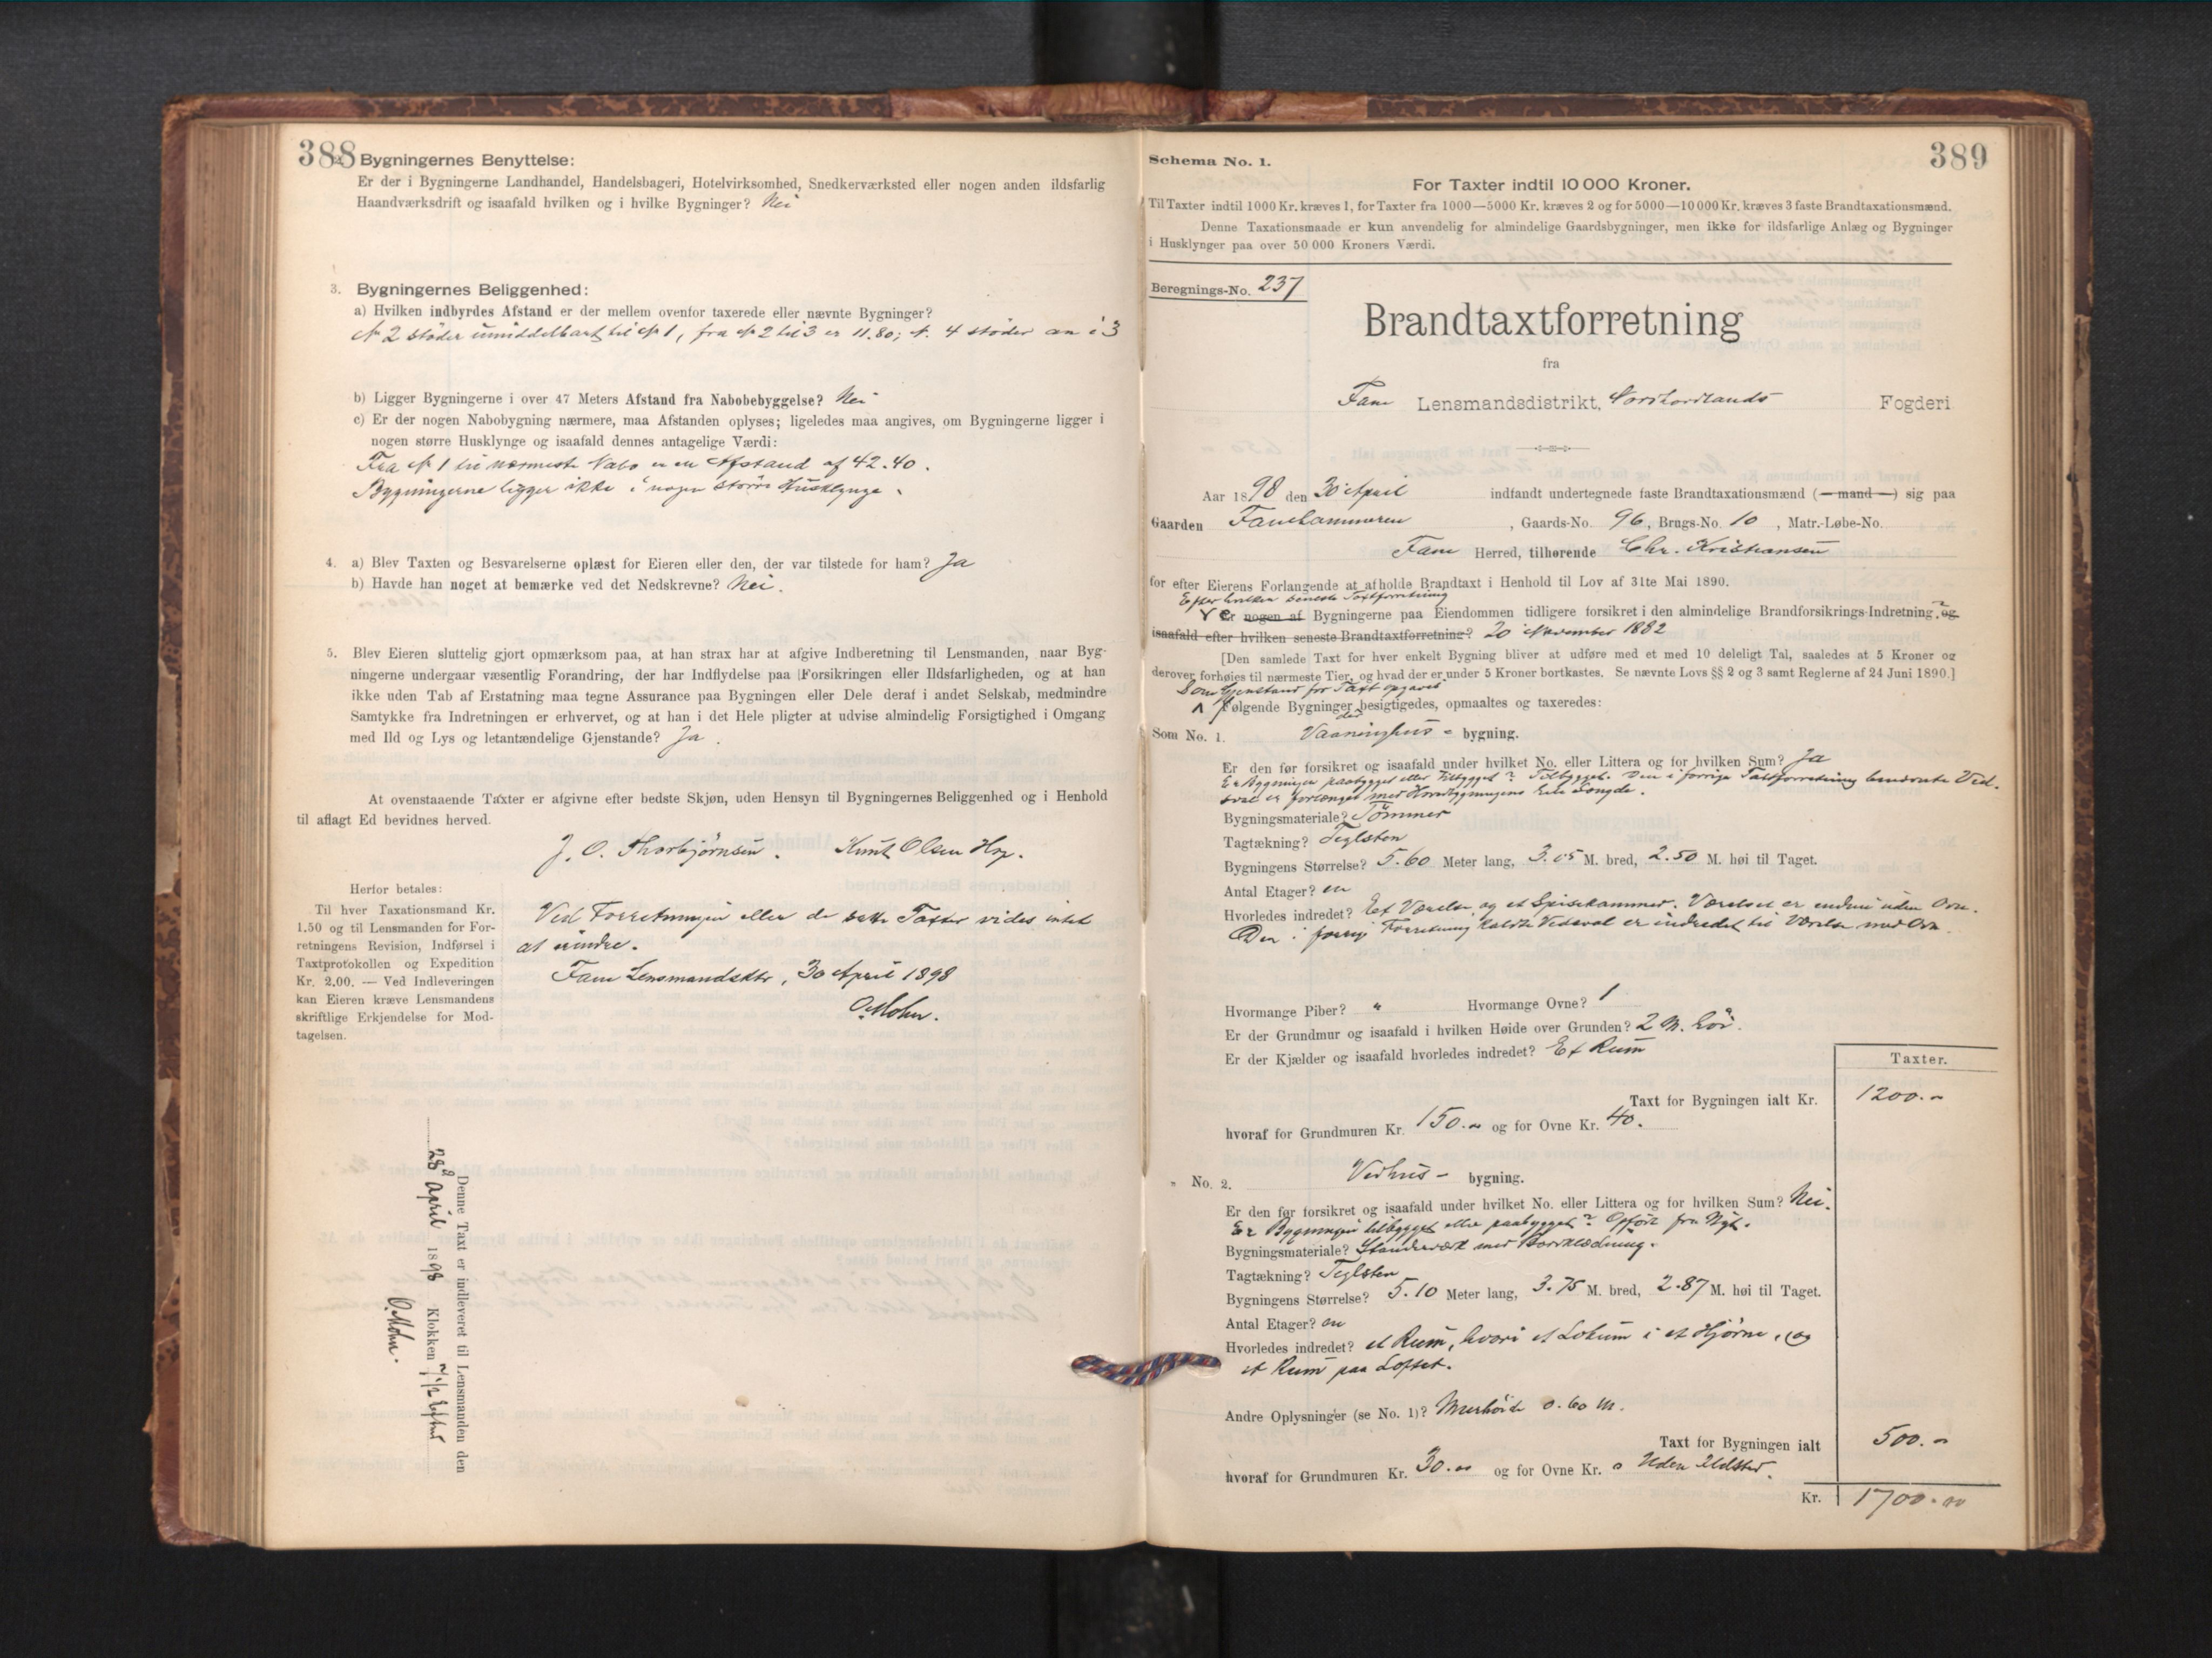 388
2. Bygningernes Benyttelse:
Er der i Bygningerne Landhandel, Handelsbageri, Hotelvirksomhed, Snedkerværksted eller nogen anden ildsfarlig
Haandværksdrift og isaafald hvilken og i hvilke Bygninger? Nei
3. Bygningernes Beliggenhed:
a) Hvilken indbyrdes Afstand er der mellem ovenfor taxerede eller nævnte Bygninger?
№ 2 støder umiddelbart til № 1, fra № 2 til 3 er 11.80; №. 4 støder an i 3
b) Ligger Bygningerne i over 47 Meters Afstand fra Nabobebyggelse? Nei
c) Er der nogen Nabobygning nærmere, maa Afstanden oplyses; ligeledes maa angives, om Bygningerne ligger i
nogen større Husklynge og isaafald dennes antagelige Værdi:
Fra № 1 til nærmeste Nabo er en Afstand af 42.40.
Bygningerne ligger ikke i nogen større Husklynge.
4. a) Blev Taxten og Besvarelserne oplæst for Eieren eller den, der var tilstede for ham? Ja
b) Havde han noget at bemærke ved det Nedskrevne? Nei.
5. Blev Eieren sluttelig gjort opmærksom paa, at han strax har at afgive Indberetning til Lensmanden, naar Byg-
ningerne undergaar væsentlig Forandring, der har Indflydelse paa Forsikringen eller Ildsfarligheden, og at han
ikke uden Tab af Erstatning maa tegne Assurance paa Bygningen eller Dele deraf i andet Selskab, medmindre
Samtykke fra Indretningen er erhvervet, og at han i det Hele pligter at udvise almindelig Forsigtighed i Omgang
med Ild og Lys og letantændelige Gjenstande? Ja.
At ovenstaaende Taxter er afgivne efter bedste Skjøn, uden Hensyn til Bygningernes Beliggenhed og i Henhold
til aflagt Ed bevidnes herved.
J. O. Thorbjørnsen. Knut Olsen Hop.
Herfor betales:
Til hver Taxationsmand Kr.
1.50 og til Lensmanden for For-
retningens Revision, Indførsel i
Taxtprotokollen og Expedition
Kr. 2.00. — Ved Indleveringen
kan Eieren kræve Lensmandens
skriftlige Erkjendelse for Mod-
tagelsen.
Ved Forretningen eller de satte Taxter vides intet
at erindre.
Fane Lensmandsktr, 30 April 1898
O. Mohn.
Denne Taxt er indleveret til Lensmanden den
28 April 1898 Klokken 7 1/2 Efterm
O. Mohn.
389
Schema No. 1.
For Taxter indtil 10 000 Kroner.
Til Taxter indtil 1000 Kr. kræves 1, for Taxter fra 1000—5000 Kr. kræves 2 og for 5000—10 000 Kr. kræves 3 faste Brandtaxationsmænd.
Denne Taxationsmaade er kun anvendelig for almindelige Gaardsbygninger, men ikke for ildsfarlige Anlæg og Bygninger
i Husklynger paa over 50 000 Kroners Værdi.
Beregnings-No. 237
Brandtaxtforretning
fra
Fane Lensmandsdistrikt, Nordhordlands Fogderi
Aar 1898 den 30 April indfandt undertegnede faste Brandtaxationsmænd (—mand—) sig paa
Gaarden Fanehammeren, Gaards-No. 96, Brugs-No. 10, Matr.-Løbe-No.
Fane Herred, tilhørende Chr. Kristiansen
for efter Eierens Forlangende at afholde Brandtaxt i Henhold til Lov af 31te Mai 1890.
Efter hvilken seneste Taxtforretning
er nogen af Bygningerne paa Eiendommen tidligere forsikret i den almindelige Brandforsikrings-Indretning? og
isaafald efter hvilken seneste Brandtaxtforretning? 20 November 1882
[Den samlede Taxt for hver enkelt Bygning bliver at udføre med et med 10 deleligt Tal, saaledes at 5 Kroner og
derover forhøies til nærmeste Tier, og hvad der er under 5 Kroner bortkastes. Se nævnte Lovs §§ 2 og 3 samt Reglerne af 24 Juni 1890.]
Som Gjenstand for Taxt opgaves
Følgende Bygninger besigtigedes, opmaaltes og taxeredes:
Som No. 1. Vaaningshus - bygning.
Er den før forsikret og isaafald under hvilket No. eller Littera og for hvilken Sum? Ja
Er Bygningen paabygget eller tilbygget? Tilbygget. Den i forrige Taxtforretning benævnte Ved-
sval er forlænget med Hovedbygningens hele Længde.
Bygningsmateriale? Tømmer
Tagtækning? Teglsten
Bygningens Størrelse? 5.60 Meter lang, 3.05 M. bred, 2.50 M. høi til Taget.
Antal Etager? en
Hvorledes indredet? Et Værelse og et Spisekammer. Værelset er endnu uden Ovn.
Den i forrige Forretning kaldte Vedsval er indredet til Værelse med Ovn.
Hvormange Piber? " Hvormange Ovne? 1
Er der Grundmur og isaafald i hvilken Høide over Grunden? 2 M. høi.
Er der Kjælder og isaafald hvorledes indredet? Et Rum
Taxter.
Taxt for Bygningen ialt Kr. 1200.-
hvoraf for Grundmuren Kr. 150.00 og for Ovne Kr. 40.
" No. 2. Vedhus - bygning.
Er den før forsikret og isaafald under hvilket No. eller Littera og for hvilken Sum? Nei.
Er Bygningen tilbygget eller paabygget? Opført fra Nyt.
Bygningsmateriale? Standerværk med Bordklædning.
Tagtækning? Teglsten
Bygningens Størrelse? 5.10 Meter lang, 3.75 M. bred, 2.87 M. høi til Taget.
Antal Etager? en
Hvorledes indredet? et Rum, hvori et Lokum i et Hjørne, og
et Rum paa Loftet.
Andre Oplysninger (se No. 1)? Murhøide 0.60 M.
Taxt for Bygningen ialt 500.-
hvoraf for Grundmuren Kr. 30.00 og for Ovne Kr. 0 Uden Ildsted.
Kr. 1700.00